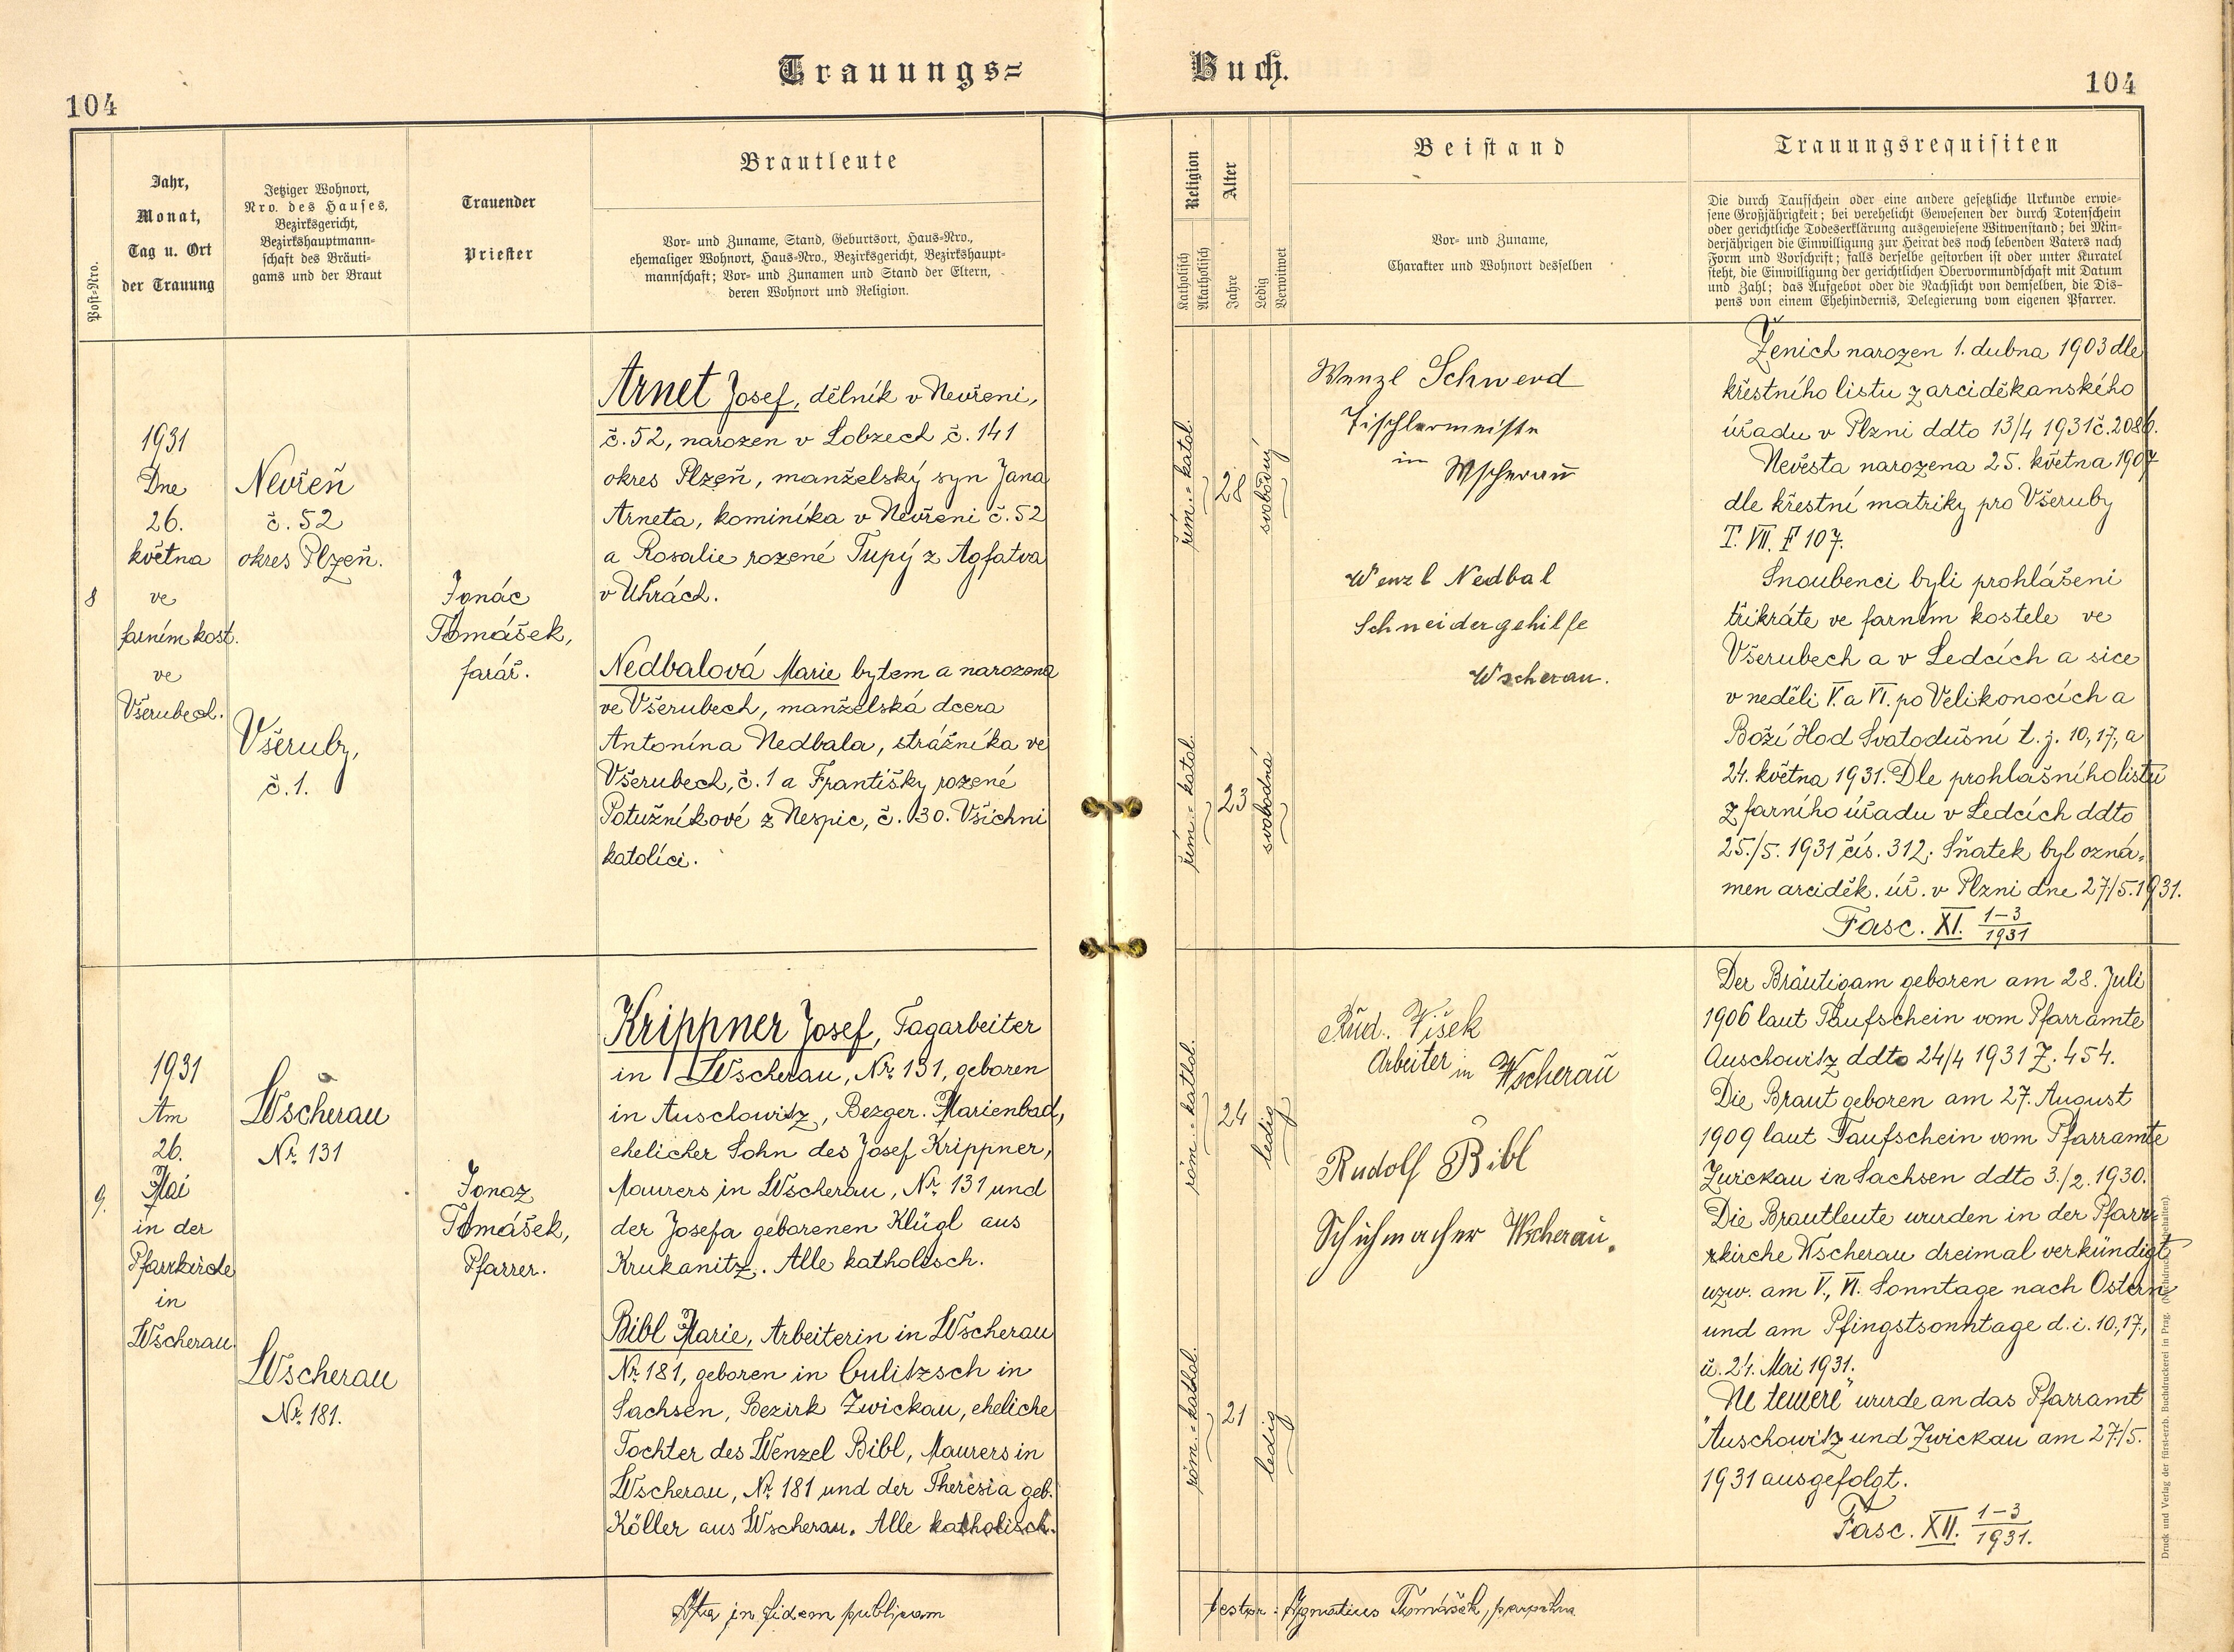 Trauungs=
Buch.
104
104
Post-Nro.
Jahr,
Monat,
Tag u. Ort
der Trauung
Jetziger Wohnort,
Nro. des Hauses,
Bezirksgericht,
Bezirkshauptmann-
schaft des Bräuti-
gams und der Braut
Trauender
Priester
Brautleute
Vor- und Zuname, Stand, Geburtsort, Haus-Nro.,
ehemaliger Wohnort, Haus-Nro., Bezirksgericht, Bezirkshaupt-
mannschaft; Vor- und Zunamen und Stand der Eltern,
deren Wohnort und Religion.
Religion
Katholisch
Akatholisch
Alter
Jahre
Ledig
Verwitwet
Beistand
Vor- und Zuname,
Charakter und Wohnort desselben
Trauungsrequisiten
Die durch Taufschein oder eine andere gesetzliche Urkunde erwie-
sene Großjährigkeit; bei verehelicht Gewesenen der durch Totenschein
oder gerichtliche Todeserklärung ausgewiesene Witwenstand; bei Min-
derjährigen die Einwilligung zur Heirat des noch lebenden Vaters nach
Form und Vorschrift; falls derselbe gestorben ist oder unter Kuratel
steht, die Einwilligung der gerichtlichen Obervormundschaft mit Datum
und Zahl; das Aufgebot oder die Nachsicht von demselben, die Dis-
pens von einem Ehehindernis, Delegierung vom eigenen Pfarrer.
8
1931
Dne
26.
května
ve
farním kost.
ve
Všerubech.
Nevřeň
č. 52
okres Plzeň.
Všeruby,
č. 1.
Ignác
Tomášek,
farář.
Arnet Josef, dělník v Nevřeni,
č. 52, narozen v Lobzech č. 141
okres Plzeň, manželský syn Jana
Arneta, kominíka v Nevřeni č. 52
a Rosalie rozené Tupý z Agfatva
v Uhrách.
Nedbalová Marie bytem a narozena
ve Všerubech, manželská dcera
Antonína Nedbala, strážníka ve
Všerubech, č. 1 a Františky rozené
Potužníkové z Nespic, č. 30. Všichni
katolíci.
řím.-katol.
28
svobodný
řím.-katol.
23
svobodná
Wenzl Schwerd
Tischlermeister
in Wscherau
Wenzl Nedbal
Schneidergehilfe
Wscherau.
Ženich narozen 1. dubna 1903 dle
křestního listu z arciděkanského
úřadu v Plzni ddto 13/4 1931 č. 2086.
Nevěsta narozena 25. května 1907
dle křestní matriky pro Všeruby
T. VII. F 107.
Snoubenci byli prohlášeni
třikráte ve farním kostele ve
Všerubech a v Ledcích a sice
v neděli V. a VI. po Velikonocích a
Boží Hod Svatodušní t. j. 10, 17, a
24. května 1931. Dle prohlášního listu
z farního úřadu v Ledcích ddto
25./5. 1931 čís. 312; Sňatek byl ozná-
men arciděk. úř. v Plzni dne 27/5. 1931.
Fasc. XI. 1-3/1931
9.
1931
Am
26.
Mai
in der
Pfarrkirche
in
Wscherau.
Wscherau
Nr. 131
Wscherau
Nr. 181.
Ignaz
Tomášek,
Pfarrer.
Krippner Josef, Tagarbeiter
in Wscherau, Nr. 131, geboren
in Auschowitz, Bezger. Marienbad,
ehelicher Sohn des Josef Krippner,
Maurers in Wscherau, Nr. 131 und
der Josefa geborenen Klügl aus
Krukanitz. Alle katholisch.
Bibl Marie, Arbeiterin in Wscherau
Nr. 181, geboren in Culitzsch in
Sachsen, Bezirk Zwickau, eheliche
Tochter des Wenzel Bibl, Maurers in
Wscherau, Nr. 181 und der Theresia geb.
Köller aus Wscherau. Alle katholisch.
röm.-kathol.
24
ledig
röm.-kathol.
21
ledig
Rud. Višek
Arbeiter in Wscherau
Rudolf Bibl
Schuhmacher Wscherau.
Der Bräutigam geboren am 28. Juli
1906 laut Taufschein vom Pfarramte
Auschowitz ddto 24/4 1931 Z. 454.
Die Braut geboren am 27. August
1909 laut Taufschein vom Pfarramte
Zwickau in Sachsen ddto 3./2. 1930.
Die Brautleute wurden in der Pfarr-
kirche Wscherau dreimal verkündigt
uzw. am V., VI. Sonntage nach Ostern
und am Pfingstsonntage d. i. 10, 17,
u. 24. Mai 1931.
"Ne temere" wurde an das Pfarramt
Auschowitz und Zwickau am 27./5.
1931 ausgefolgt.
Fasc. XII. 1-3/1931.
Ita in fidem publicam
testor: Ignatius Tomášek, parochus
Druck und Verlag der fürst-erzb. Buchdruckerei in Prag. (Nachdruck vorbehalten).